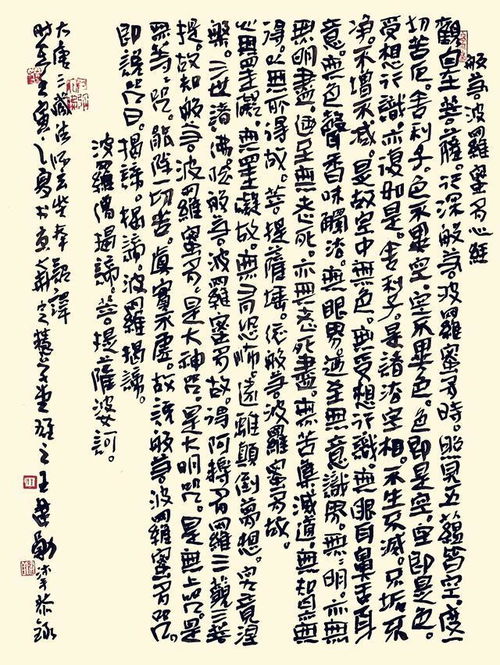 般若波羅蜜多心經
觀自在菩薩。行深般若波羅蜜多時。照見五蘊皆空。度一
切苦厄。舍利子。色不異空。空不異色。色即是空。空即是色。
受想行識亦復如是。舍利子。是諸法空相。不生不滅。不垢不
淨。不增不減。是故空中無色。無受想行識。無眼耳鼻舌身
意。無色聲香味觸法。無眼界。乃至無意識界。無無明。亦無
無明盡。乃至無老死。亦無老死盡。無苦集滅道。無智亦無
得。以無所得故。菩提薩埵。依般若波羅蜜多故。
心無罣礙。無罣礙故。無有恐怖。遠離顛倒夢想。究竟涅
槃。三世諸佛。依般若波羅蜜多故。得阿耨多羅三藐三菩
提。故知般若波羅蜜多。是大神咒。是大明咒。是無上咒。是
無等等咒。能除一切苦。真實不虛。故說般若波羅蜜多咒。
即說咒曰。揭諦。揭諦。波羅揭諦。
波羅僧揭諦。菩提薩婆訶。
大唐三藏法師玄奘奉詔譯
時在壬寅之 恭錄